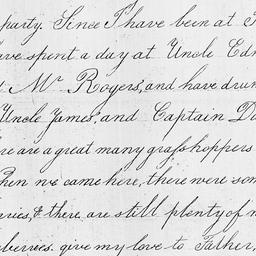 party. Since I have been at
have spent a day at Uncle Edm
Mr Royers, and have drun
Uncle James, and Captain Da
re are a great many grasshoppers
When we came here, there were som
rries, & there are still plenty of
berries. give my love to Father,